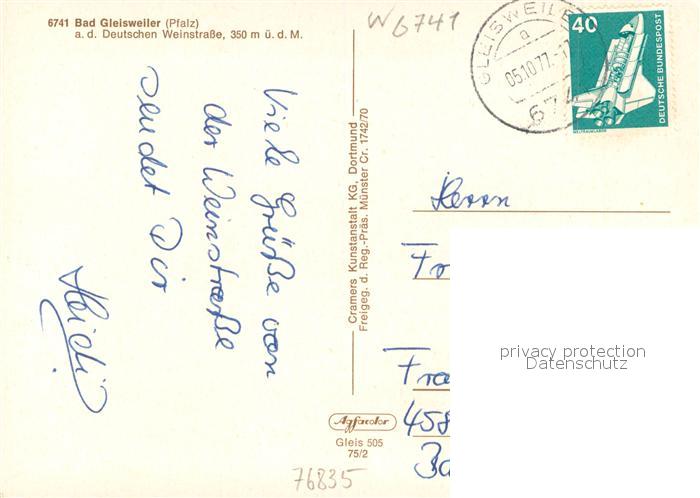 6741 Bad Gleisweiler (Pfalz)
a. d. Deutschen Weinstraße, 350 m ü. d. M.
W 6741
GLEISWEILER
a
05.10.77.-1
674
40
DEUTSCHE BUNDESPOST
WELTRAUMLABOR
Viele Grüße von
der Weinstraße
sendet Dir
Heidi
Cramers Kunstanstalt KG, Dortmund
Freigeg. d. Reg.-Präs. Münster Cr. 1742/70
Herrn
Fr
Fra
458
privacy protection
Datenschutz
Agfacolor
Gleis 505
75/2
76835